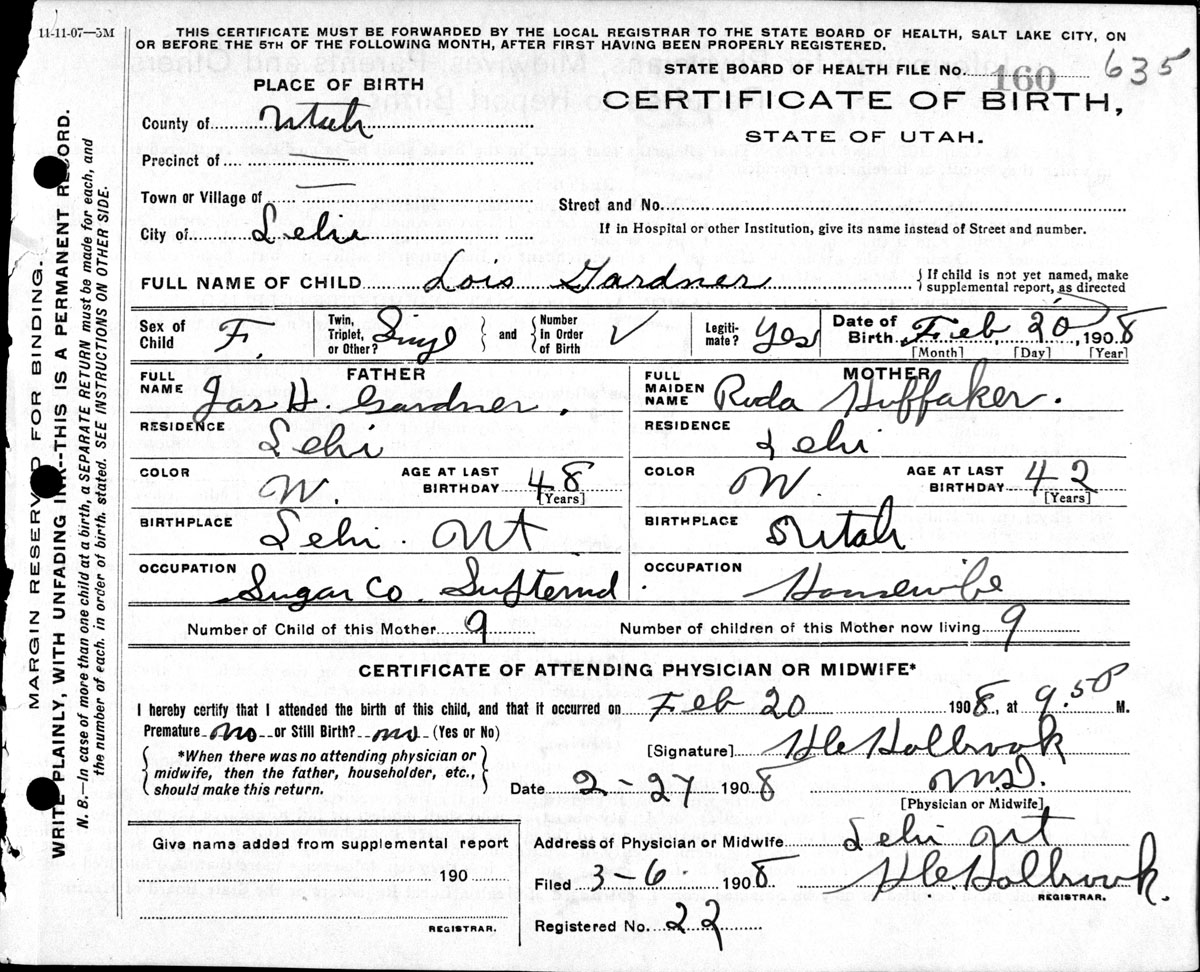 11-11-07—5M
THIS CERTIFICATE MUST BE FORWARDED BY THE LOCAL REGISTRAR TO THE STATE BOARD OF HEALTH, SALT LAKE CITY, ON
OR BEFORE THE 5TH OF THE FOLLOWING MONTH, AFTER FIRST HAVING BEEN PROPERLY REGISTERED.
STATE BOARD OF HEALTH FILE No. 160 635
CERTIFICATE OF BIRTH,
STATE OF UTAH.
PLACE OF BIRTH
County of Utah
Precinct of —
Town or Village of —
Street and No.
City of Lehi
If in Hospital or other Institution, give its name instead of Street and number.
FULL NAME OF CHILD Lois Gardner
{If child is not yet named, make
supplemental report, as directed
Sex of Child F.
Twin, Triplet, or Other? Singl
and {Number in Order of Birth
Legiti-mate? Yes
Date of Birth Feb 20, 1908
[Month] [Day] [Year]
FATHER
FULL NAME Jas H. Gardner.
RESIDENCE Lehi
COLOR W.
AGE AT LAST BIRTHDAY 48
[Years]
BIRTHPLACE Lehi. Ut
OCCUPATION Sugar Co.
MOTHER
FULL MAIDEN NAME Roda Huffaker.
RESIDENCE Lehi
COLOR W.
AGE AT LAST BIRTHDAY 42
[Years]
BIRTHPLACE Utah
OCCUPATION Housewife
Number of Child of this Mother 9
Number of children of this Mother now living 9
CERTIFICATE OF ATTENDING PHYSICIAN OR MIDWIFE*
I hereby certify that I attended the birth of this child, and that it occurred on Feb 20 1908, at 9.50 M.
Premature no or Still Birth? no (Yes or No)
{*When there was no attending physician or
midwife, then the father, householder, etc.,
should make this return.}
[Signature] H C Holbrook
M.D.
[Physician or Midwife]
Date 2-27 1908
Address of Physician or Midwife Lehi Ut
Filed 3-6. 1908 H.C. Holbrook.
REGISTRAR.
Registered No. 22
Give name added from supplemental report
190
REGISTRAR.
MARGIN RESERVED FOR BINDING.
WRITE PLAINLY, WITH UNFADING INK--THIS IS A PERMANENT RECORD.
N. B.—In case of more than one child at a birth, a SEPARATE RETURN must be made for each, and
the number of each, in order of birth, stated. SEE INSTRUCTIONS ON OTHER SIDE.